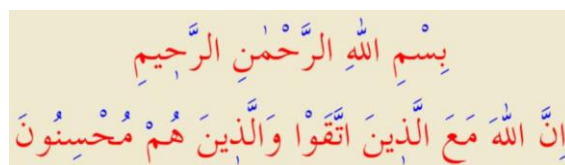 بِسْمِ اللهِ الرَّحْمٰنِ الرَّحٖيمِ
اِنَّ اللهَ مَعَ الَّذٖينَ اتَّقَوْا وَالَّذٖينَ هُمْ مُحْسِنُونَ